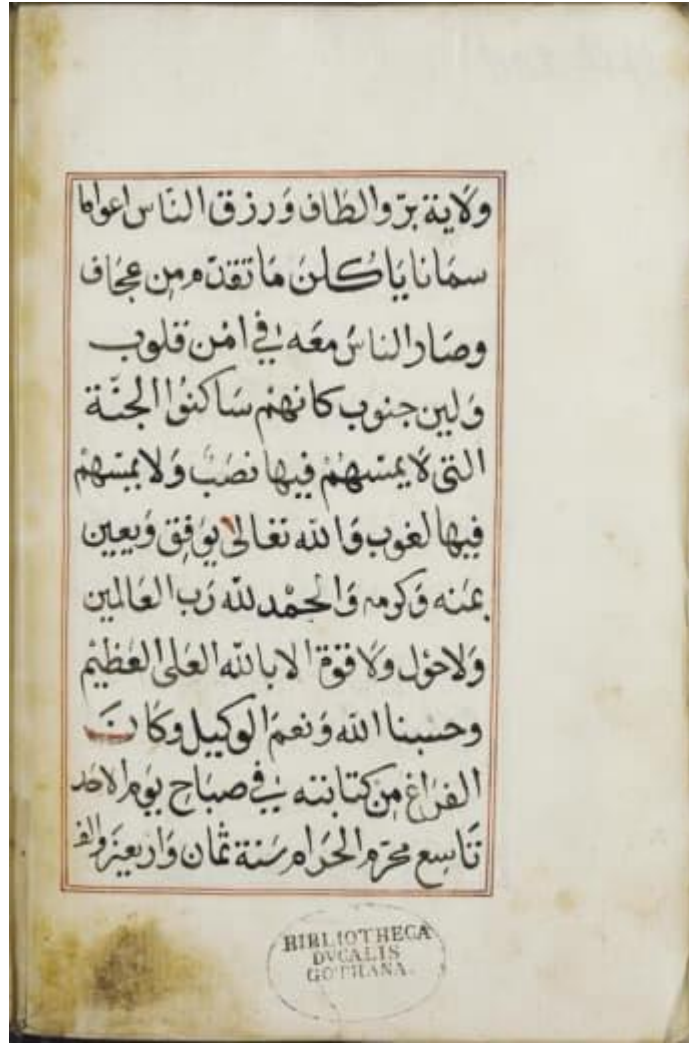 ولاية برّ والطاف وَرزق الناس اعواما
سمَانا يَاكلنَ مَا تقدّم مِن عجَاف
وصَار الناسُ معَه في امْن قلوب
وَلين جنوب كانهمْ سَاكنوُا الجنَّة
التى لَا يمسّهمْ فيها نصَبٌ وَلا يمسّهمْ
فيها لغوب وَالله تعَالى يوَفق وَيعين
بمَنه وَكرمه وَالحمْد لله رَب العَالمين
وَلا حوْل وَلا قوّة الا بالله العَلى العَظيْم
وحسْبنا الله وَنعمَ الوكيل وكَانَ
الفرَاغ مِن كتَابته في صبَاح يوَم الاحد
تَاسِع محرّم الحرَام سَنة ثمان وَاربعينَ والف
BIBLIOTHECA
DVCALIS
GOTHANA.